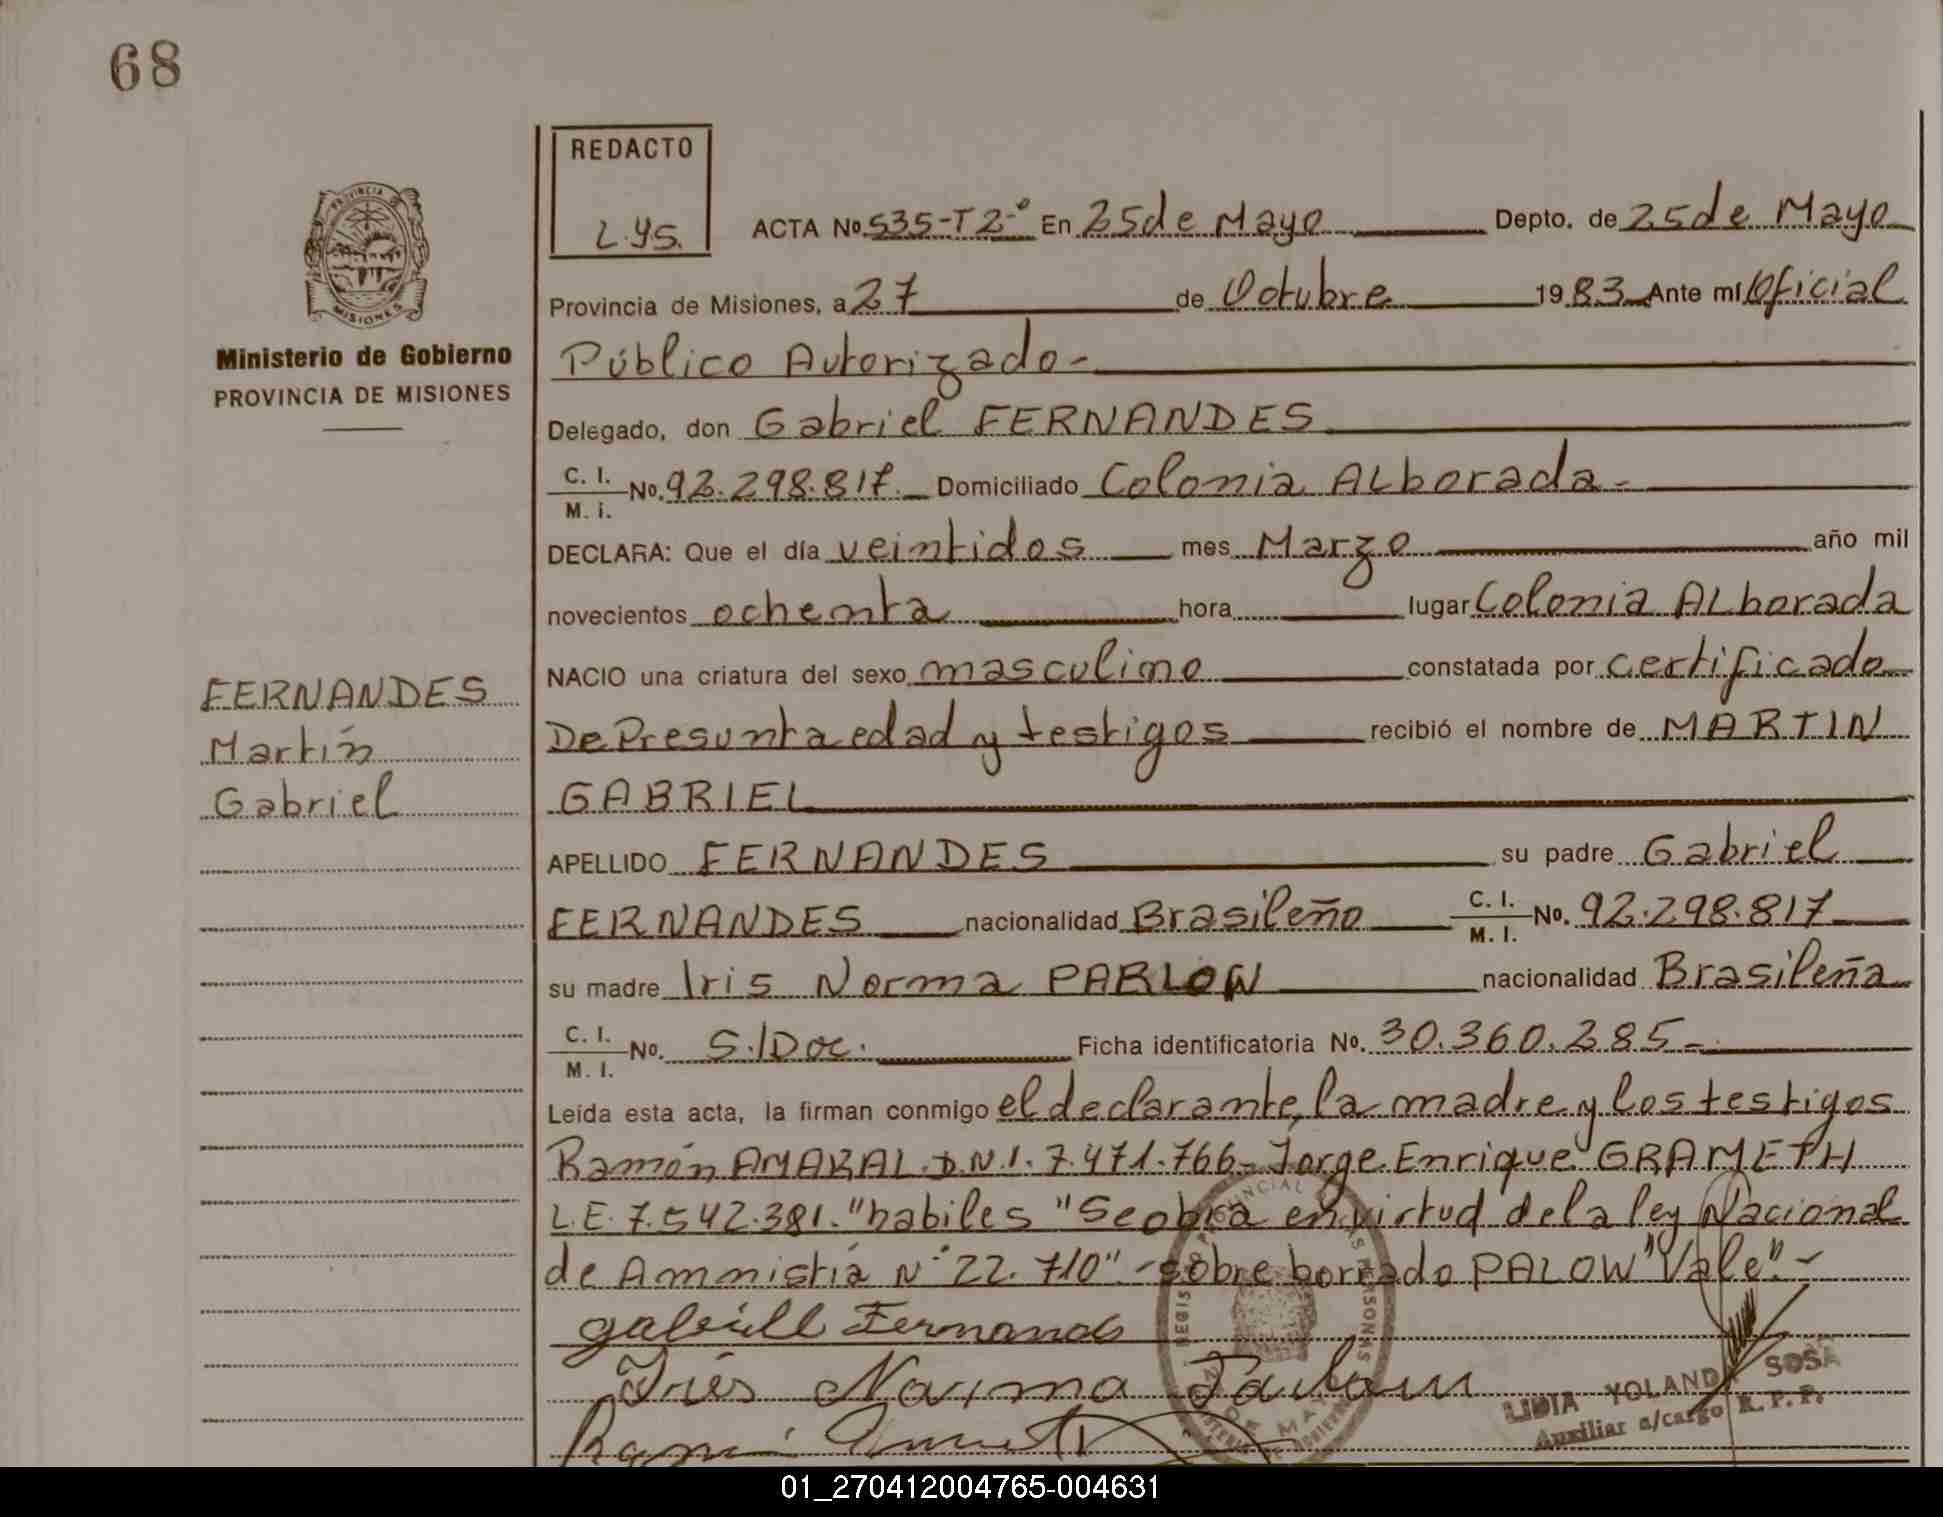 68
REDACTO
L.YS.
PROVINCIA
MISIONES
Ministerio de Gobierno
PROVINCIA DE MISIONES
ACTA No. 535-T2-º En 25 de Mayo Depto. de 25 de Mayo
Provincia de Misiones, a 27 de Octubre 1983 Ante mí Oficial
Público Autorizado-
Delegado, don Gabriel FERNANDES
C. I. M. i. No. 92.298.817. Domiciliado Colonia ALborada-
DECLARA: Que el día veintidos mes Marzo año mil
novecientos ochenta hora lugar Colonia ALborada
NACIO una criatura del sexo masculino constatada por certificado
De Presunta edad y testigos recibió el nombre de MARTIN
GABRIEL
FERNANDES
Martín
Gabriel
APELLIDO FERNANDES su padre Gabriel
FERNANDES nacionalidad Brasileño C. I. M. I. No. 92.298.817
su madre Iris Norma PABLOW nacionalidad Brasileña
C. I. M. I. No. S./Doc. Ficha identificatoria No. 30.360.285-
Leída esta acta, la firman conmigo el declarante, la madre y los testigos
Ramón AMARAL D.N.I. 7.471.766- Jorge Enrique GRAMETH
L.E. 7.542.381. "habiles "Se obra en virtud de la ley Nacional
de Ammistía Nº 22.710".- sobre borrado PALOW "Vale".-
gabriell Fernandes
Norma
LIDIA YOLANDA SOSA
Auxiliar a/cargo R. P. P.
01_270412004765-004631